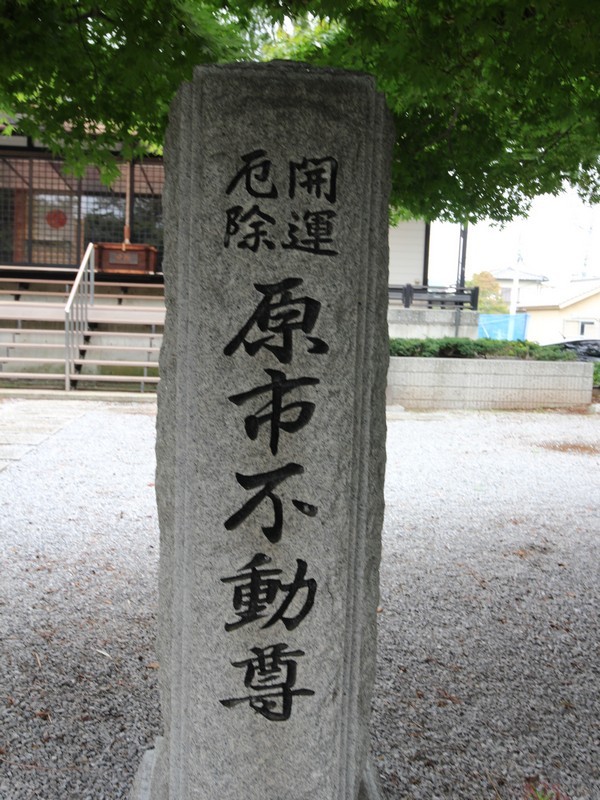 開運
厄除
原市不動尊